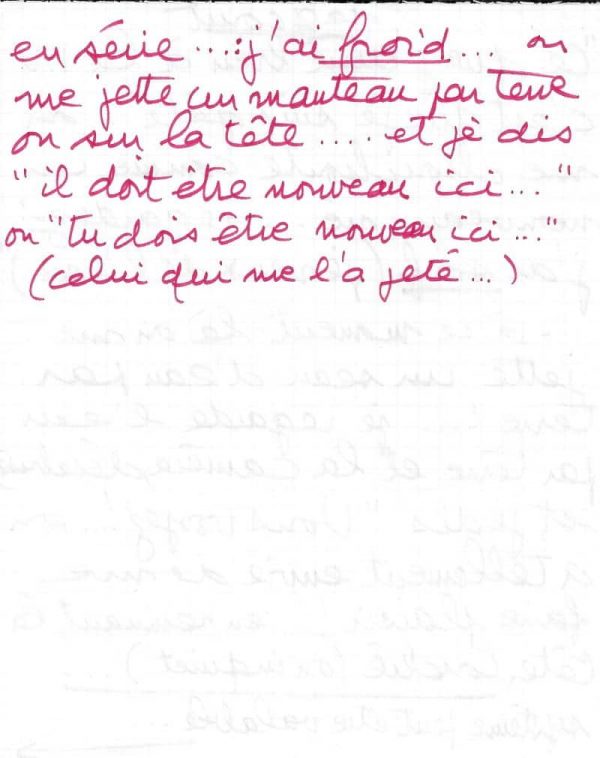 en série ...: j'ai froid ... on
me jette un manteau par terre
ou sur la tête .... et je dis
"il doit être nouveau ici..."
ou "tu dois être nouveau ici..."
(celui qui me l'a jeté...)